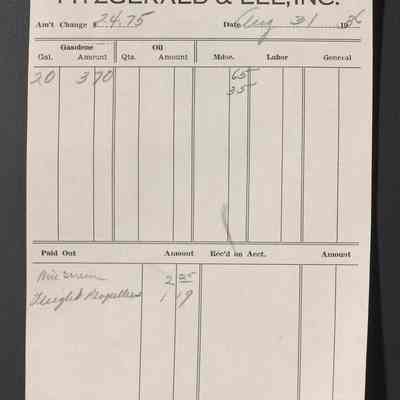 FITZGERALD & LEE, INC.
Am't Change $ 24.75 Date Aug 31 1936
Gasolene Oil
Gal. Amount Qts. Amount Mdse. Labor General
20 3 70 65
35
Paid Out Amount Rec'd on Acct. Amount
2 25
1 19